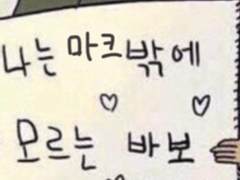 나는 마크밖에
모르는 바보